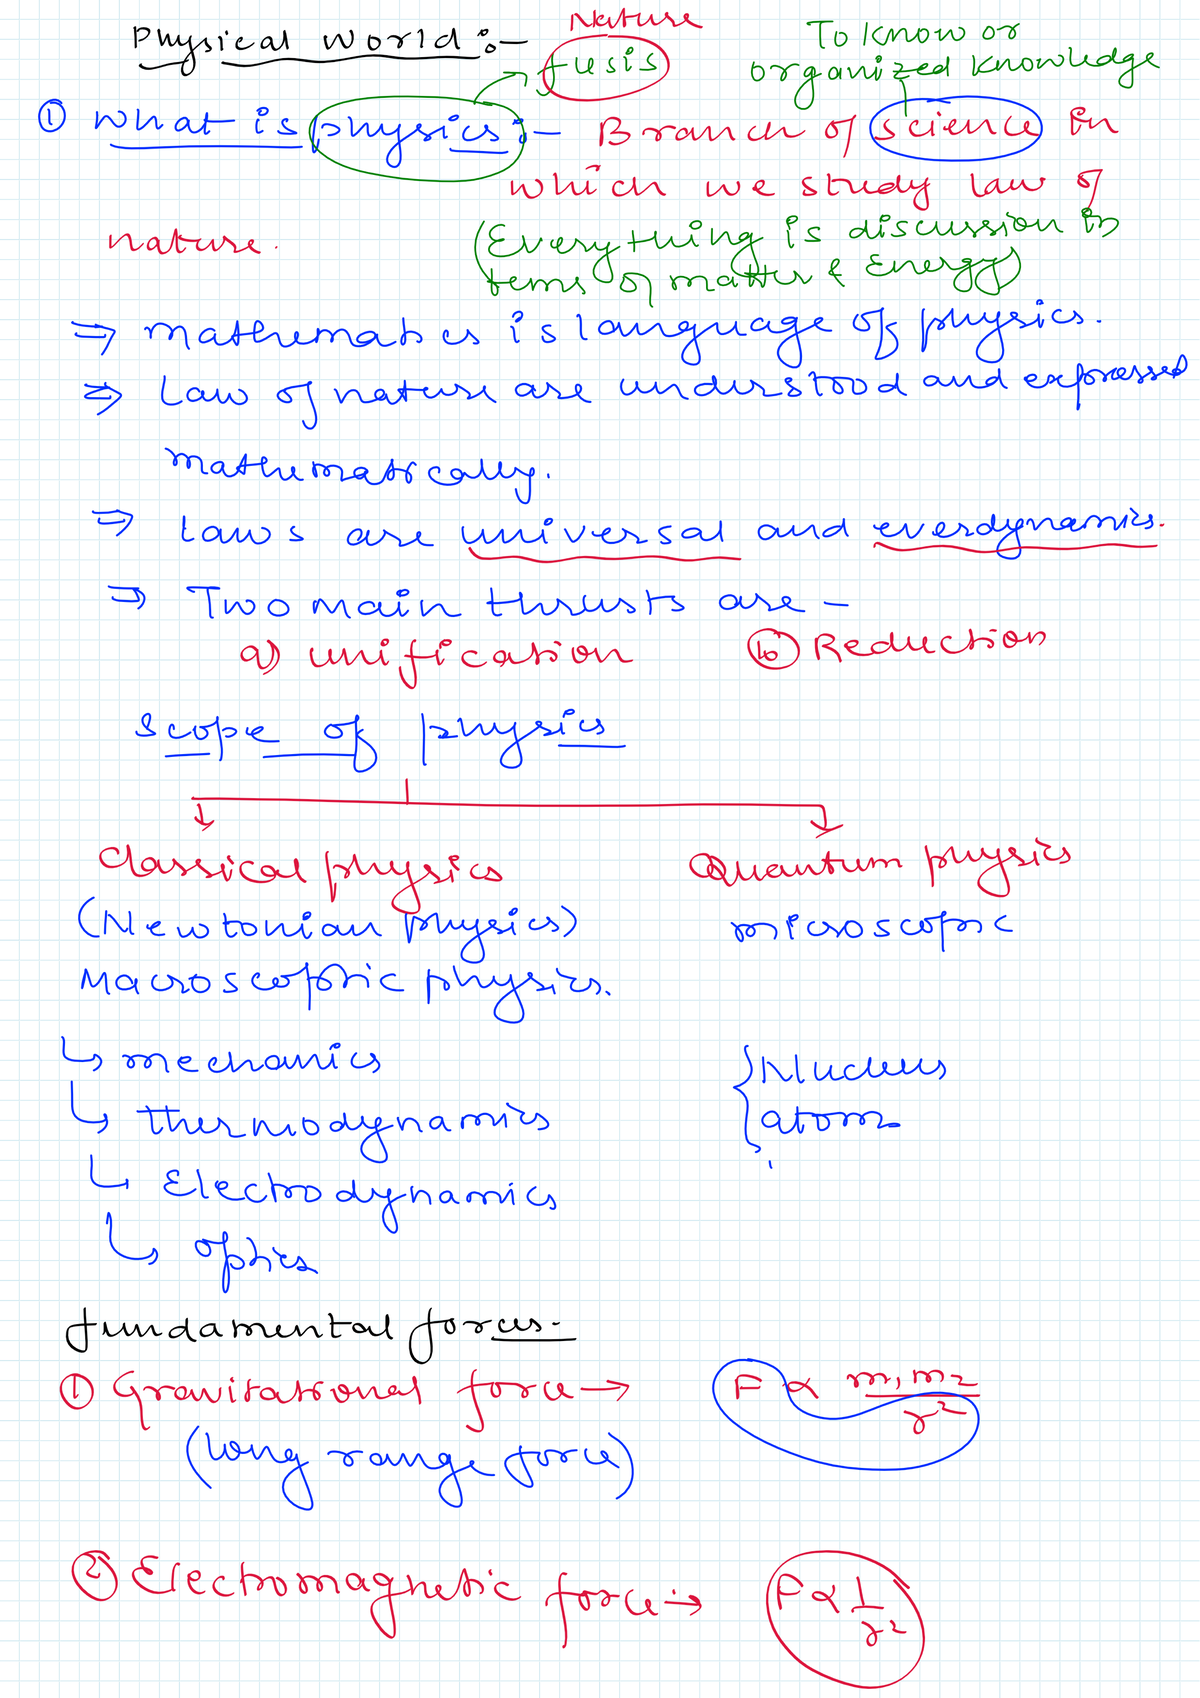 Physical world :-
Nature
fusis
To know or
organized knowledge
① What is physics :- Branch of science in
which we study law of
nature.
(Everything is discussion in
tems of matter & Energy)
⇒ mathematics is language of physics.
⇒ Law of nature are understood and expressed
mathematically.
⇒ Laws are universal and everdynamics.
⇒ Two main thrusts are -
a) unification
ⓑ Reduction
Scope of physics
Classical physics
Quantum physics
(Newtonian physics)
microscopic
Macroscopic physics.
↳ mechanics
↳ thermodynamics
↳ Electrodynamics
↳ optics
{ Nucleus
atom
fundamental forces.
① Gravitational force → F ∝ m₁m₂/r²
(long range force)
② Electromagnetic force → F ∝ 1/r²